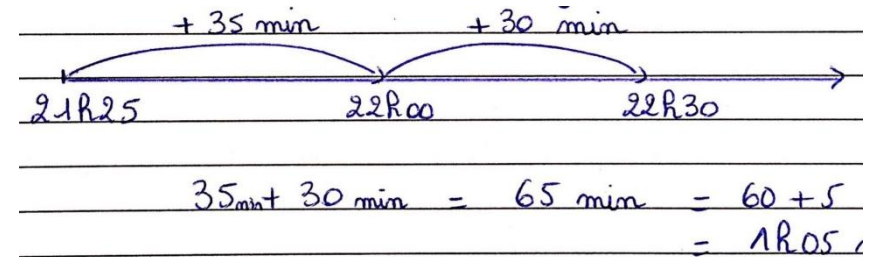 + 35 min + 30 min
21h25 22h00 22h30
35min + 30 min = 65 min = 60 + 5
= 1h05